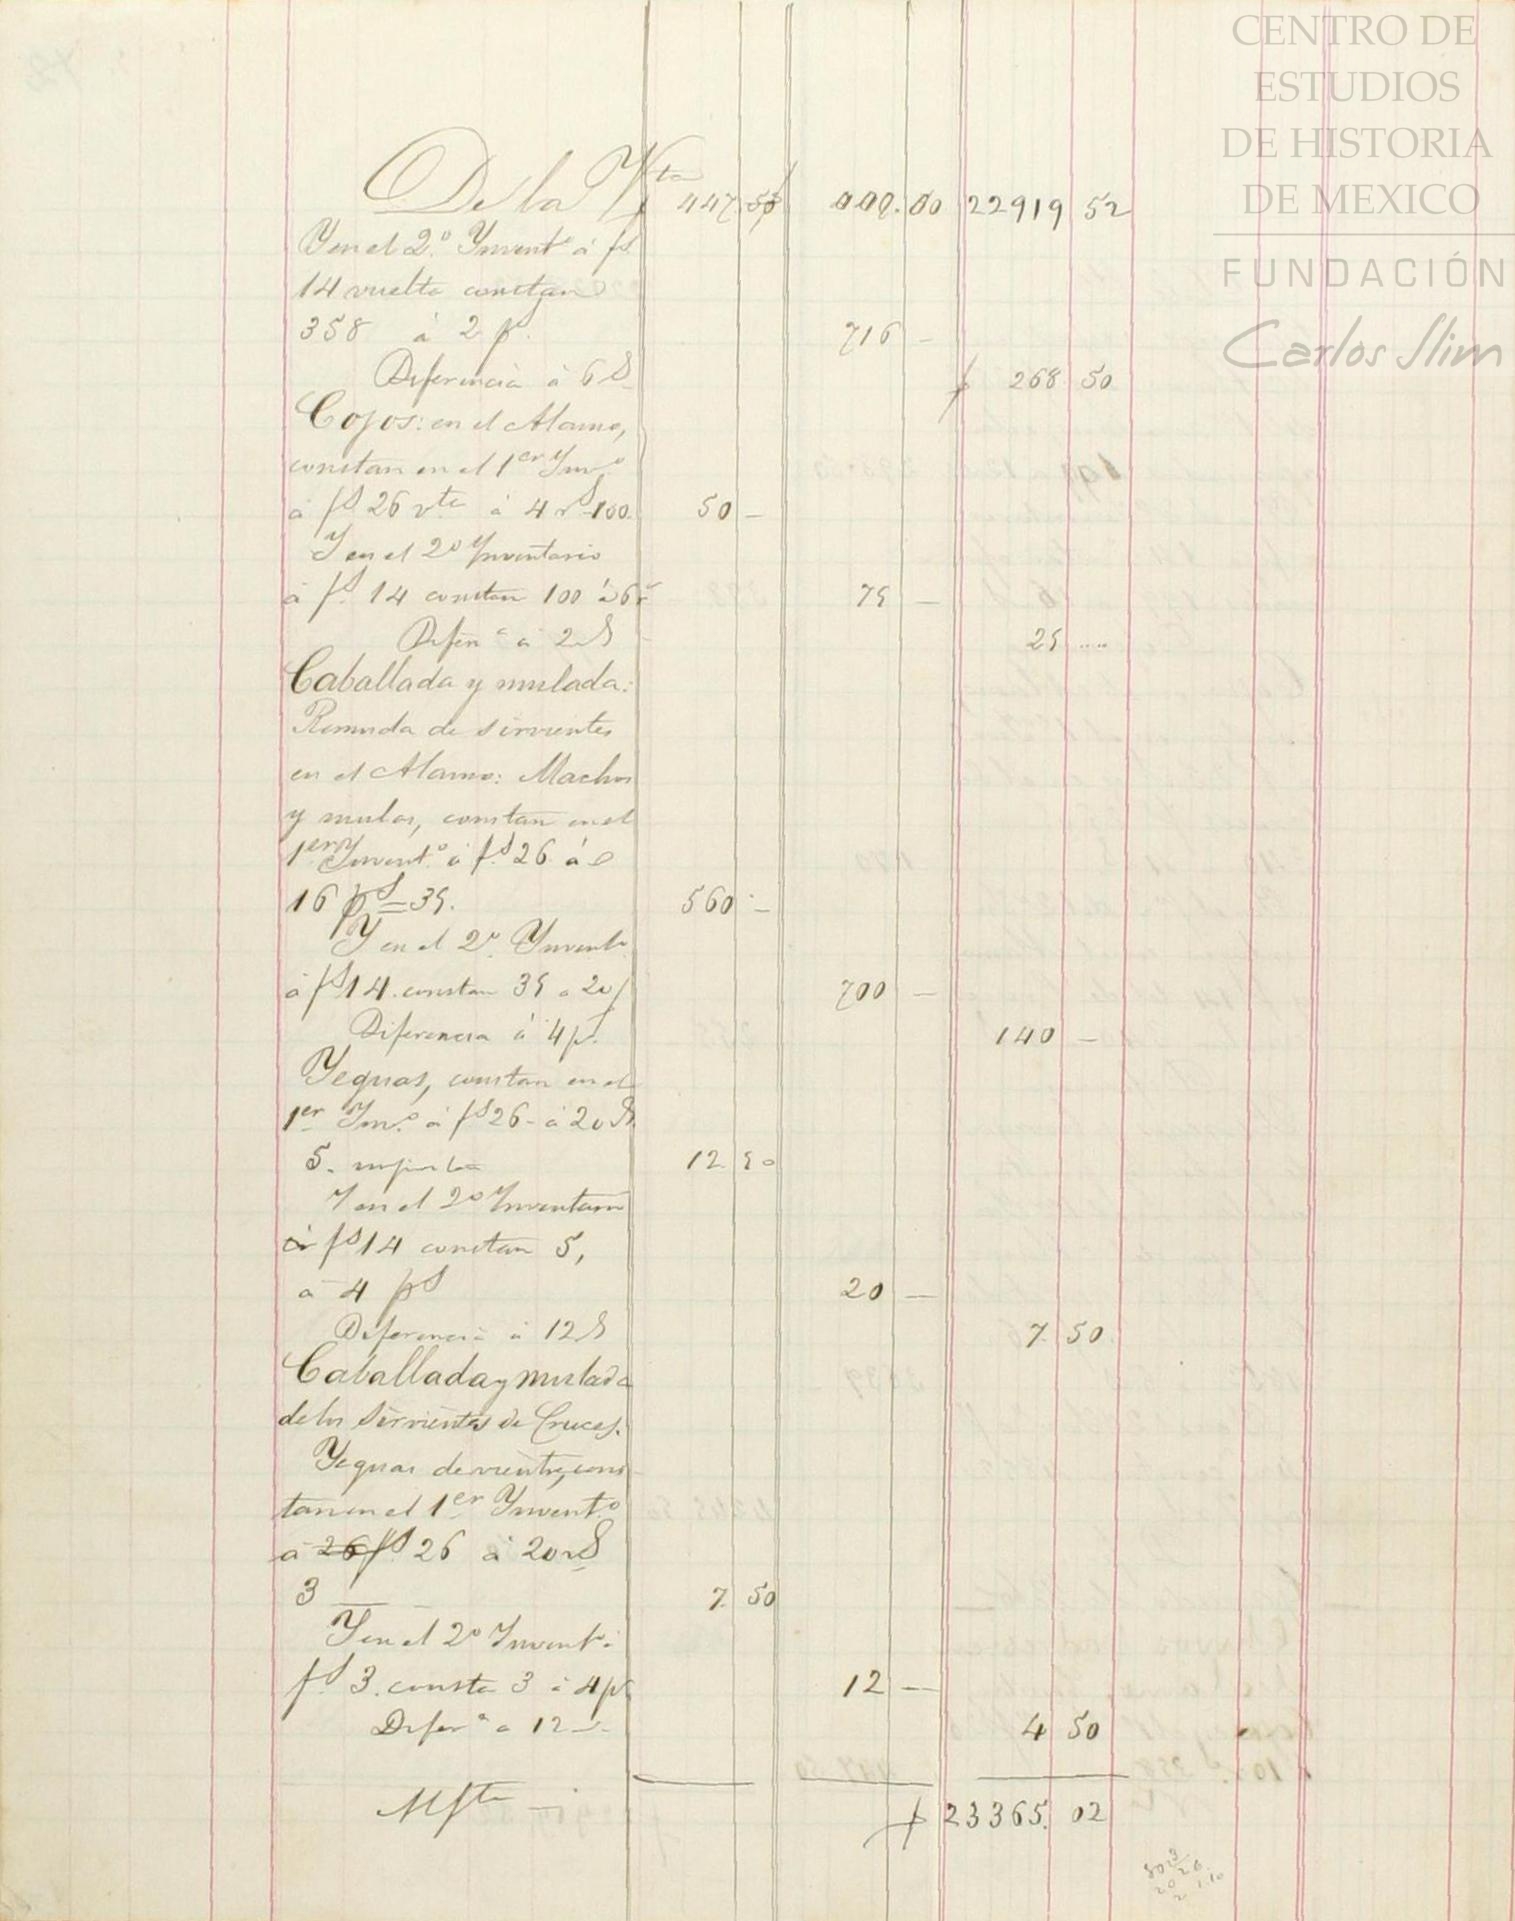 CENTRO DE
ESTUDIOS
DE HISTORIA
DE MEXICO
FUNDACIÓN
Carlos Slim
De la Vta 447. 50 000. 00 22919 52
Y en el 2º Invent.º á fs
14 vuelta constan
358 á 2 ps. 716 —
Diferencia á 6 rs $ 268 50
Cojos: en el Alamo,
constan en el 1er Inv.º
á fs 26 vta á 4 rs 100. 50 —
Y en el 2º Inventario
á fs. 14 constan 100 á 6 r 75 —
Difera á 2 rs 25 ....
Caballada y mulada:
Remuda de sirvientes
en el Alamo: Machos
y mulas, constan en el
1er Invent.º á fs 26 á
16 ps = 35. 560 —
Y en el 2º Invento
á fs 14. constan 35 a 20 p 700 —
Diferencia á 4 p. 140 —
Yeguas, constan en el
1er Inv.º á fs 26 - á 20 rs
5. importan 12. 50
Y en el 2º Inventario
á fs 14 constan 5,
á 4 ps 20 —
Diferencia á 12 rs 7. 50
Caballada y mulada
de los Sirvientes de Cruces.
Yeguas de vientre, cons
tan en el 1er Invent.º
á 26 fs 26 á 20 rs
3 — — 7. 50
Y en el 2º Invento á
fs. 3. consta 3 á 4 p 12 —
Difera a 12 rs 4 50
Al fte — $ 23365. 02